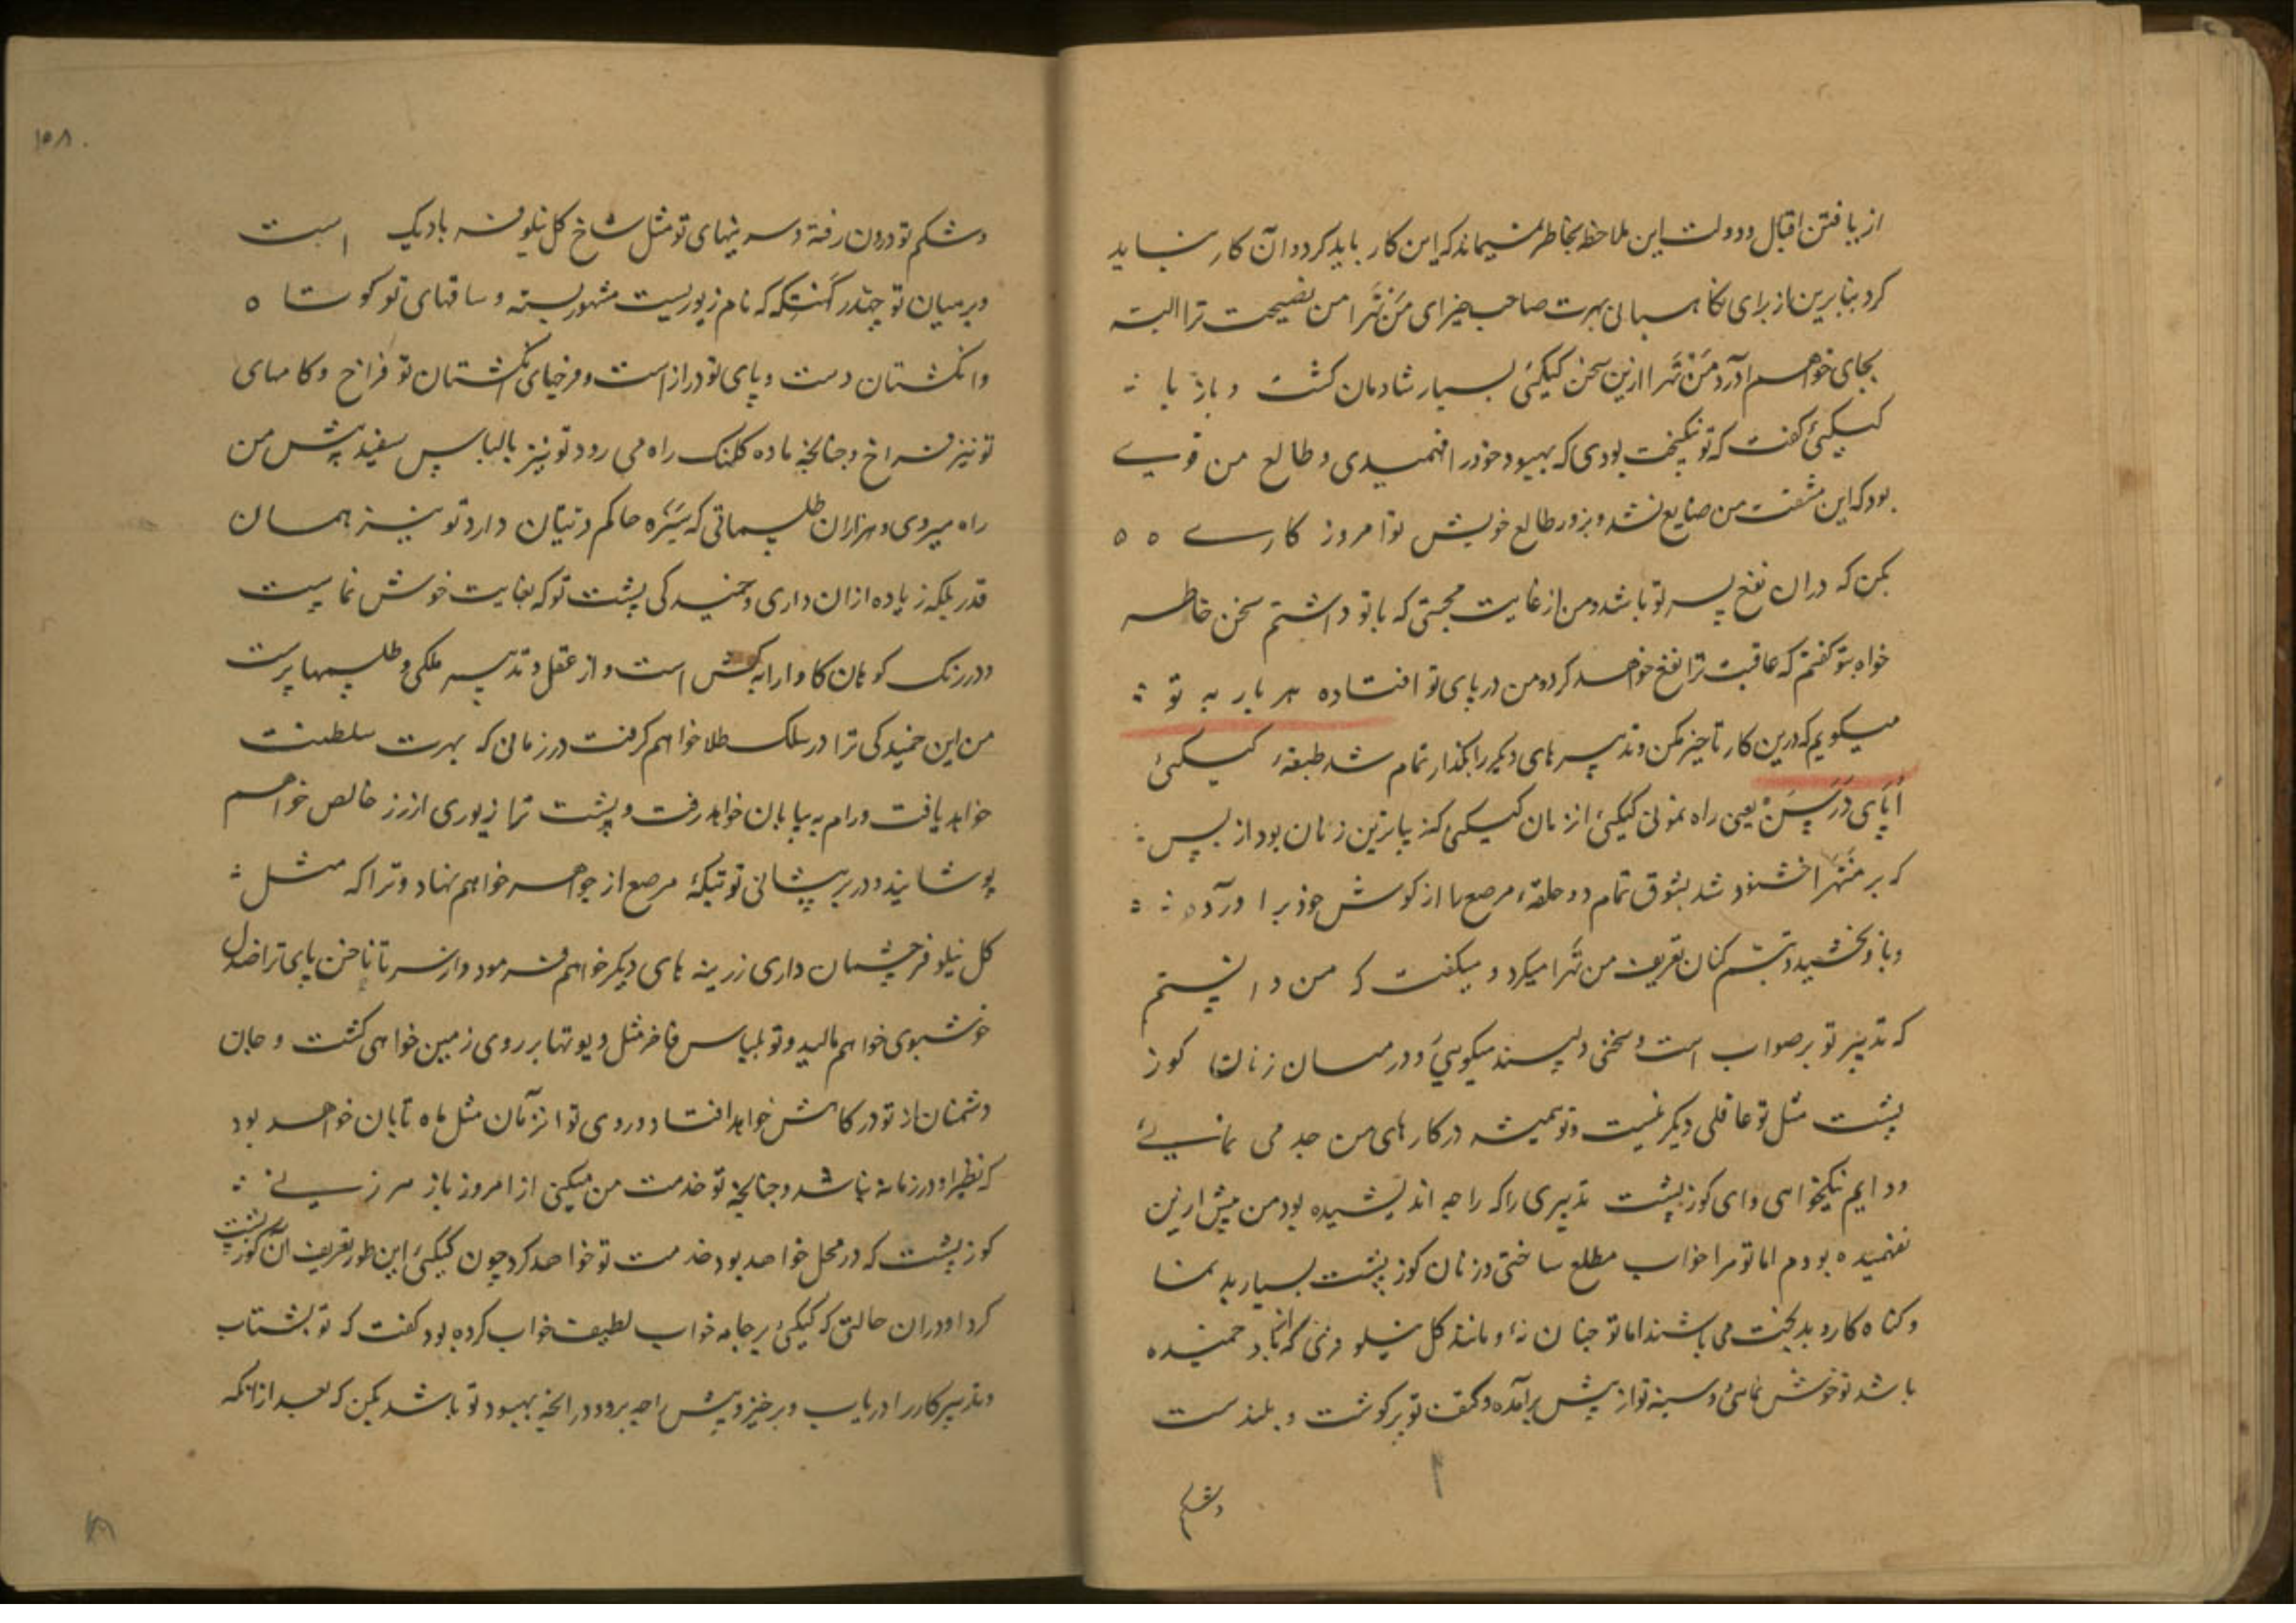 از یافتن اقبال و دولت این ملاحظه بخاطر نمیماند که این کار باید کرد و آن کار نباید
کرد بنابرین از برای نکاهبانی بهرت صاحب خیر ای مَنْتَهَرا من نصیحت ترا البته
بجای خواهم آورد مَنْتَهَرا ازین سخن کیکئی بسیار شادمان کشت و باز با
کیکئی کفت که تو نیکبخت بودی که بهبود خود را فهمیدی و طالع من قوی
بود که این مشقت من ضایع نشد و بزور طالع خویش تو امروز کاری
بکن که دران نفع پسر تو باشد و من از غایت محبتی که با تو داشتم سخن خاطر
خواه بتو کفتم که عاقبت ترا نفع خواهد کرد و من در پای تو افتاده هر بار به تو
میکویم که درین کار تاخیر مکن و تدبیر های دیکر را بکذار تمام شد طبقهٔ کیکئی
اُپَای دَرَسَنْ یعنی راه نمونی کیکئی از زمان کیکئی که زیباترین زنان بود از بس
که بر منتهرا خشنود شد بشوق تمام دو حلقهٔ مرصع را از کوش خود برآورده
و باو بخشید و تبسم کنان تعریف من تهرا میکرد و میکفت که من دانستم
که تدبیر تو بر صواب است و سخنی دلپسند میکویی و در میان زنان کوز
پشت مثل تو عاقلی دیکر نیست و تو همیشه در کارهای من جد می نمائی
و دایم نیکخواهی و ای کوز پشت تدبیری را که راجه اندیشیده بود من پیش ازین
نفهمیده بودم اما تو مرا خواب مطلع ساختی و زنان کوز پشت بسیار بد نما
و کناه کار و بدبخت می باشند اما تو چنان نهٔ و مانند کل نیلوفری که از باد خمیده
باشد تو خوش نمائی و سینه تو از پیش برآمده و کتف تو پر کوشت و بلند ست
و شکم
۱۵۸
و شکم تو درون رفته و سرینهای تو مثل شاخ کل نیلوفر باریک است
و بر میان تو چهندر کَنتِکه که نام زیوریست مشهور بسته و ساقهای تو کوتاه
و انکشتان دست و پای تو دراز است و فرجهای انکشتان تو فراخ و کامهای
تو نیز فراخ و چنانچه ماده کلنک راه می رود تو نیز با لباس سفید پیش من
راه میروی و هزاران طلسماتی که سَنبَره حاکم دیتان دارد تو نیز همان
قدر بلکه زیاده ازان داری و خمیدکی پشت تو که بغایت خوش نماست
و در رنک کوهان کاو ارابه کش است و از عقل و تدبیر ملکی و طلسمها پرست
من این خمیدکی ترا در سلک طلا خواهم کرفت در زمانی که بهرت سلطنت
خواهد یافت و رام به بیابان خواهد رفت و پشت ترا زیوری از زر خالص خواهم
پوشانید و در پیشانی تو تیکهٔ مرصع از جواهر خواهم نهاد و ترا که مثل
کل نیلوفر چشمان داری زرینه های دیکر خواهم فرمود و از سر تا ناخن پای ترا صندل
خوشبوی خواهم مالید و تو بلباس فاخر مثل دیوتها بر روی زمین خواهی کشت و جان
دشمنان از تو در کاهش خواهد افتاد و روی تو از زمان مثل ماه تابان خواهد بود
که نظیر او در زمانه نباشد و چنانچه تو خدمت من میکنی از امروز باز هر زنی
کوز پشت که در محل خواهد بود خدمت تو خواهد کرد چون کیکئی این طور تعریف آن کوز پشت
کرد او دران حالتی که کیکئی بر جامه خواب لطیف خواب کرده بود کفت که تو بشتاب
و تدبیر کار را دریاب و برخیز و پیش راجه برو و در آنچه بهبود تو باشد بکن که بعد ازانکه